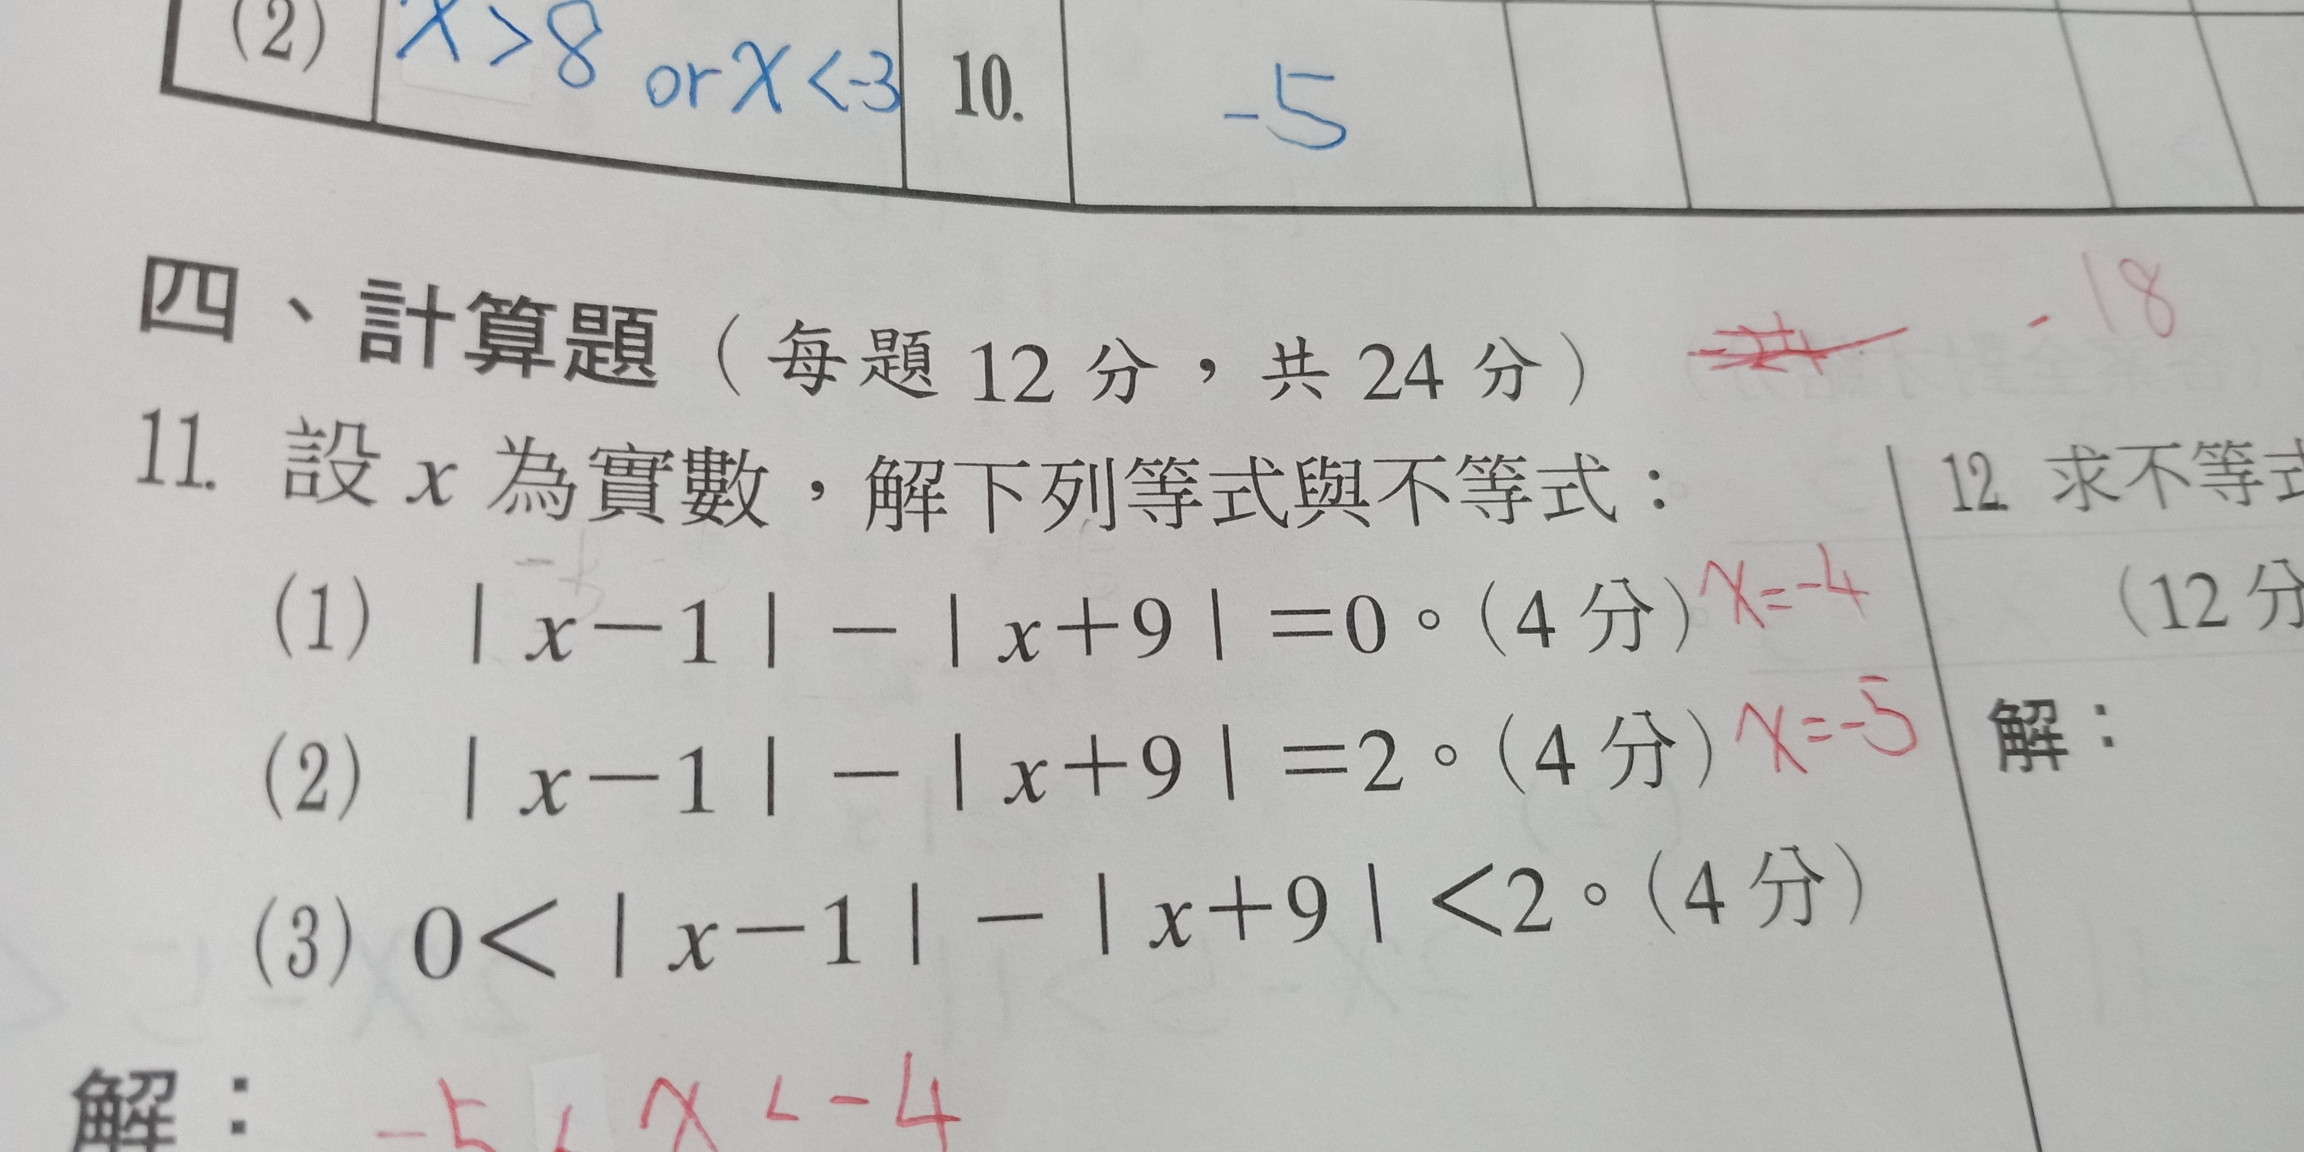 (2) x>8 or x<-3 10. -5
四、計算題（每題 12 分，共 24 分） -18
11. 設 x 為實數，解下列等式與不等式：
(1) | x－1 |－| x＋9 |＝0。（4 分） x=-4
(2) | x－1 |－| x＋9 |＝2。（4 分） x=-5
(3) 0＜| x－1 |－| x＋9 |＜2。（4 分）
解： -5 < x < -4
12. 求不等式
（12 分
解：